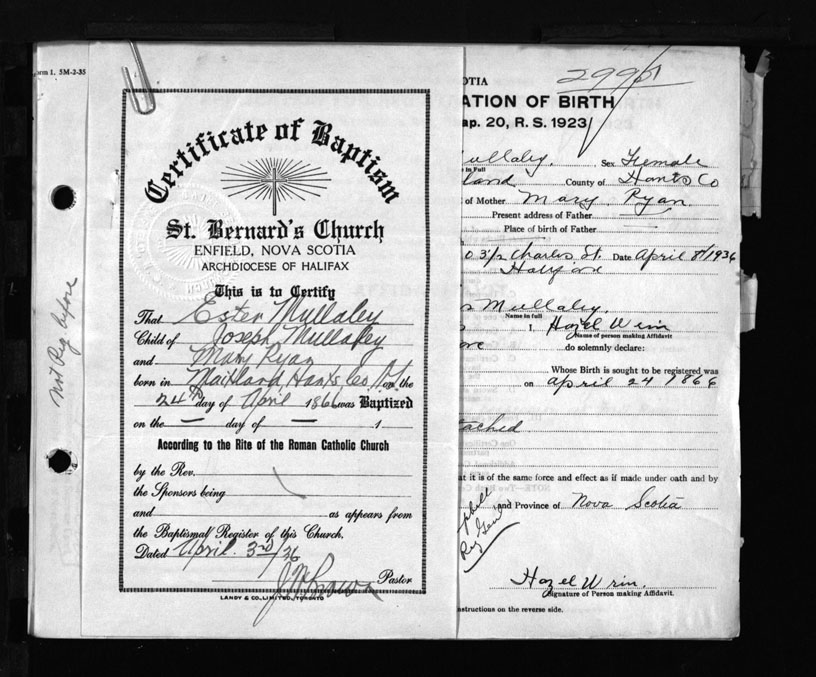 orm 1. 5M-2-35
Not Reg before
Certificate of Baptism
St. Bernard's Church
ENFIELD, NOVA SCOTIA
ARCHDIOCESE OF HALIFAX
This is to Certify
That Ester Mullaley
Child of Joseph Mullaley
and Mary Ryan
born in Maitland Hants Co. N.S. on the
24th day of April 1866 was Baptized
on the — day of — 1
According to the Rite of the Roman Catholic Church
by the Rev.
the Sponsors being
and as appears from
the Baptismal Register of this Church.
Dated April 3rd/36
Pastor
LANDY & CO., LIMITED, TORONTO
OTIA
ATION OF BIRTH
ap. 20, R. S. 1923
ullaley. Sex Female
e in Full
land County of Hants Co
of Mother Mary Ryan
Present address of Father
Place of birth of Father
3 1/2 Charles St. Date April 8/1936
Mullaley.
Name in full
I, Hazel Wrin
Name of person making Affidavit
do solemnly declare:
Whose Birth is sought to be registered was
on April 24 1866
tached
at it is of the same force and effect as if made under oath and by
nd Province of Nova Scotia
pbell
Reg Gen
Hazel Wrin.
Signature of Person making Affidavit.
nstructions on the reverse side.